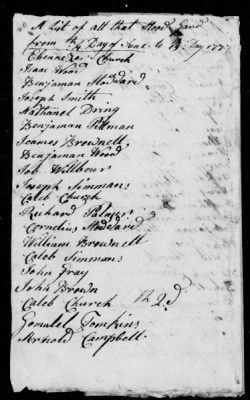 A List of all that Stood Gard
from the 14 Day of June to 15 Day 177
Ebenezer Church
Isaac Wood
Benjaman Stoddard
Joseph Smith
Nathanel Dring
Benjaman Tilman
Joames Brownell
Benjaman Wood
Job Willbour
Joseph Simmans
Caleb Church
Richard Palmer
Cornelius Stoddard
William Brownell
Caleb Simmans
John Gray
John Brown
Caleb Church th 2d
Gamalel Tomkins
Arnold Campbell